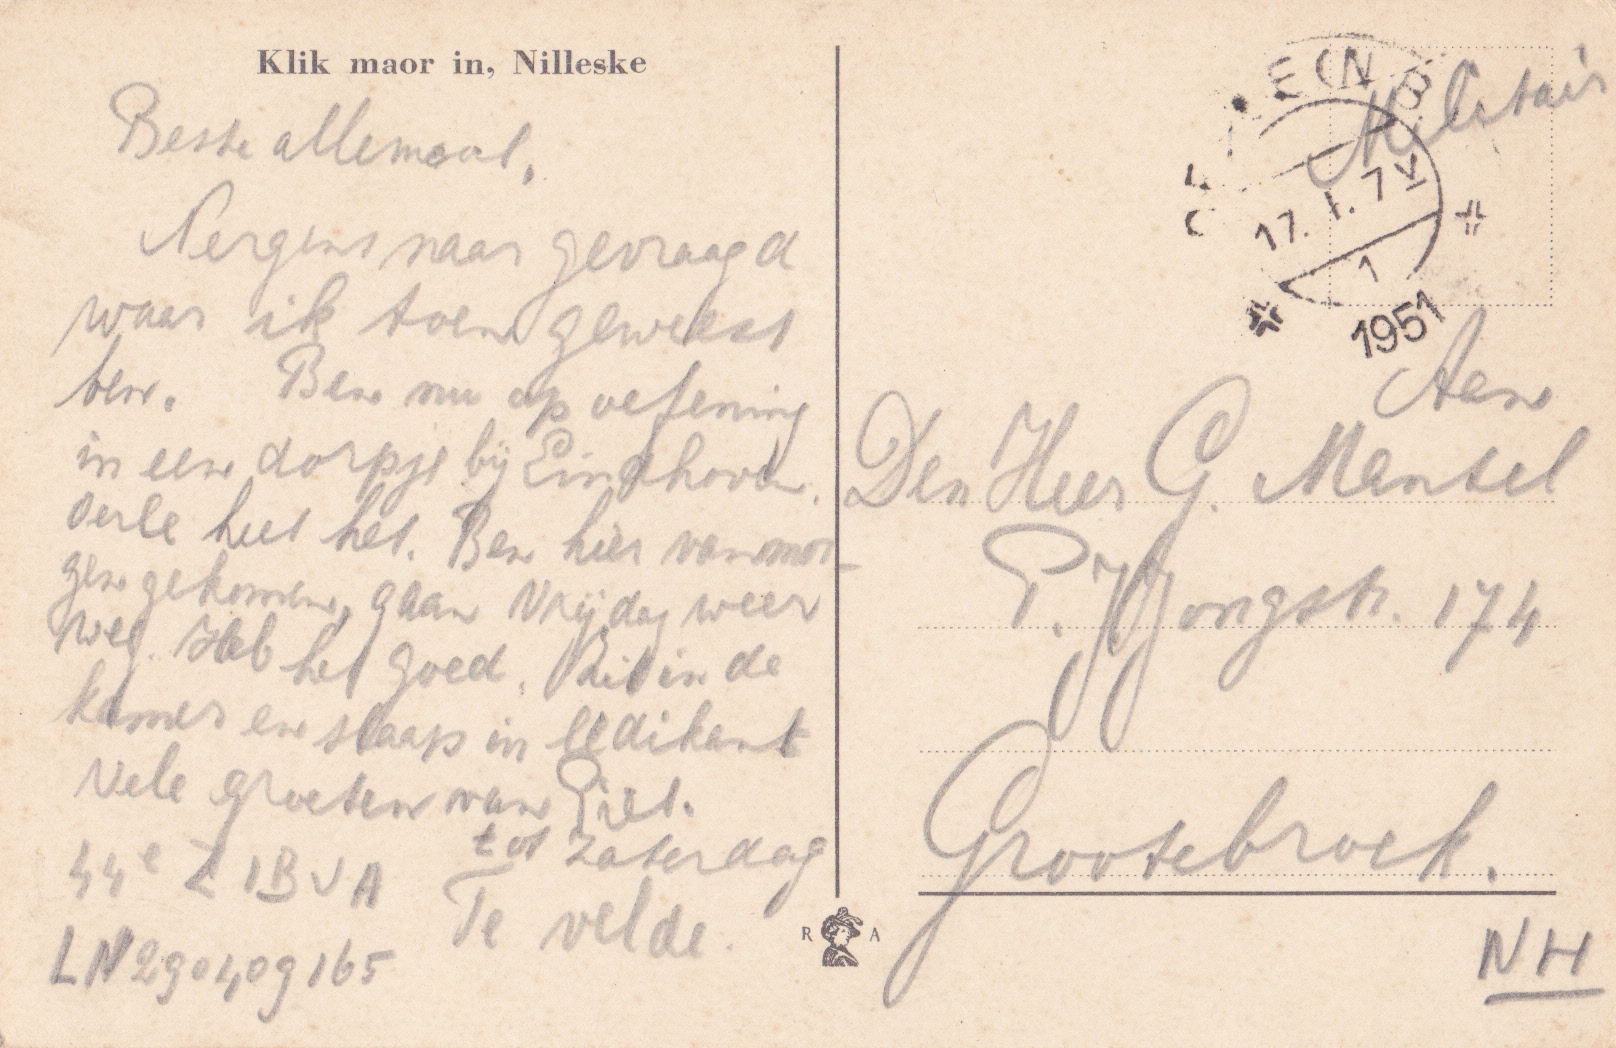 Klik maor in, Nilleske
Beste allemaal,
Nergens naar gevraagd
waar ik toen geweest
ben. Ben nu op oefening
in een dorpje bij Eindhoven.
Oerle heet het. Ben hier vanmor-
gen gekomen, gaan Vrijdag weer
weg. Heb het goed. Zit in de
kamer en slaap in ledikant
Vele groeten van Piet.
tot Zaterdag
44e Z IBVA
Te velde.
LN 290409165
Militair
EIND
17. I. 7 V
1
1951
Aen
Den Heer G. Mantel
P. J. Jongstr. 174
Grootebroek.
R A
NH